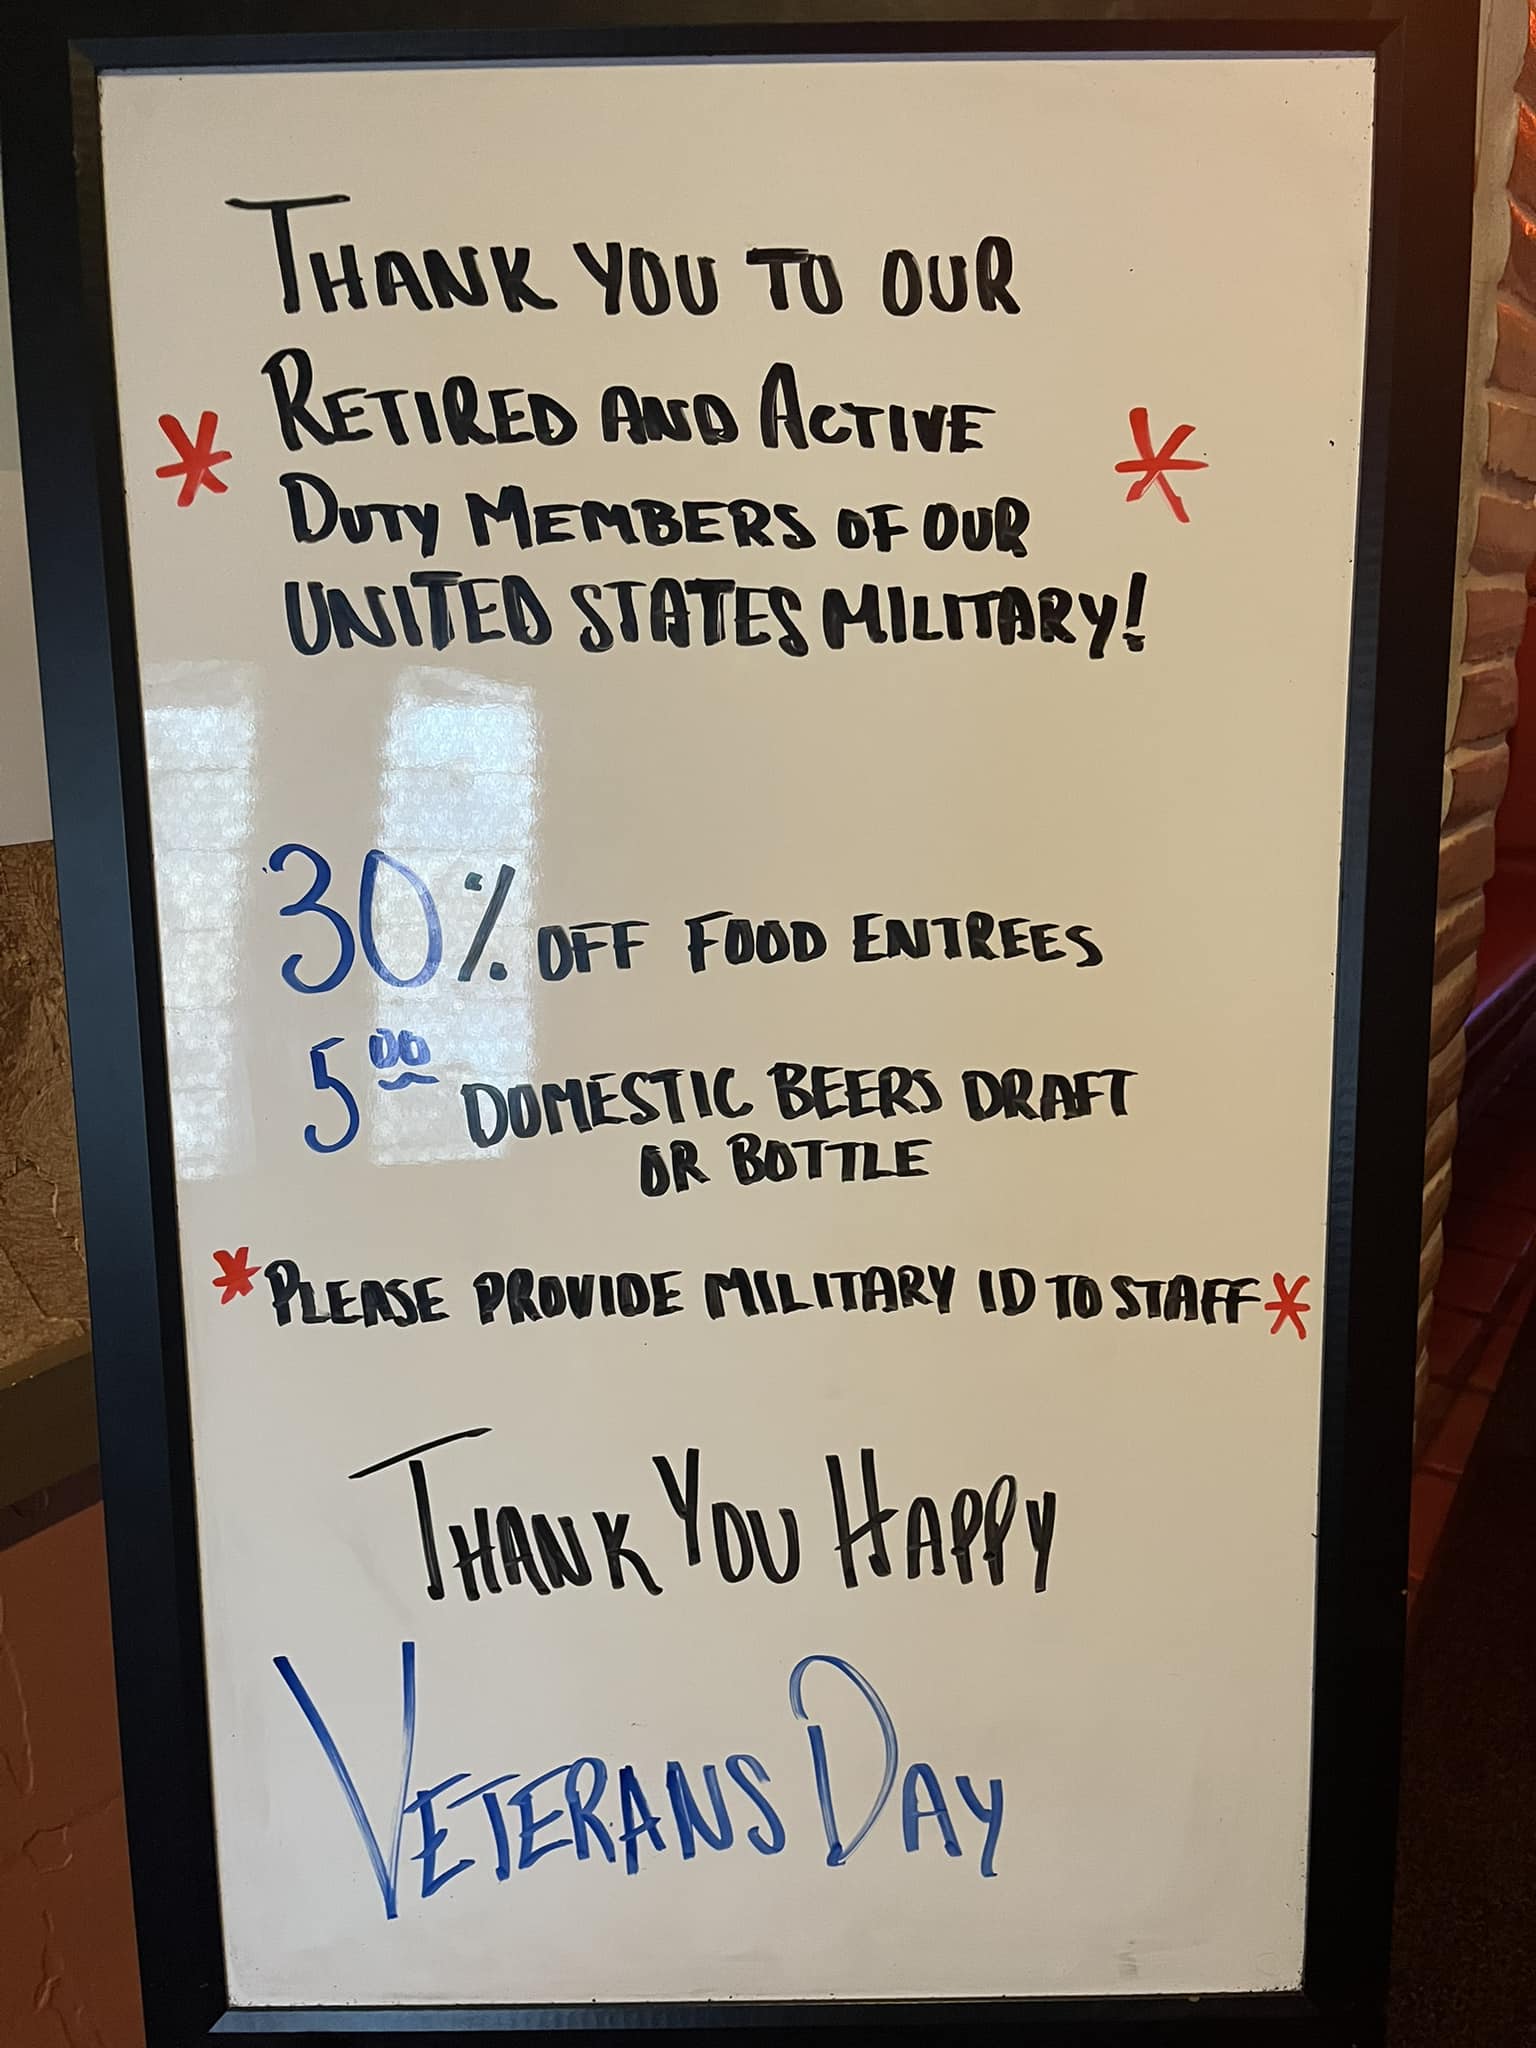 THANK YOU TO OUR
RETIRED AND ACTIVE
* DUTY MEMBERS OF OUR *
UNITED STATES MILITARY!
30% OFF FOOD ENTREES
5.00 DOMESTIC BEERS DRAFT
OR BOTTLE
*PLEASE PROVIDE MILITARY ID TO STAFF*
THANK YOU HAPPY
VETERANS DAY